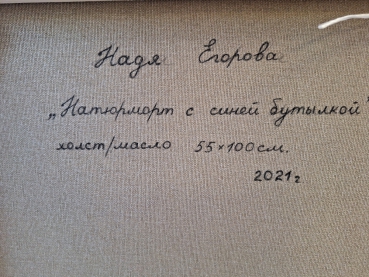 Надя Егорова
„Натюрморт с синей бутылкой"
холст/масло 55×100см.
2021г